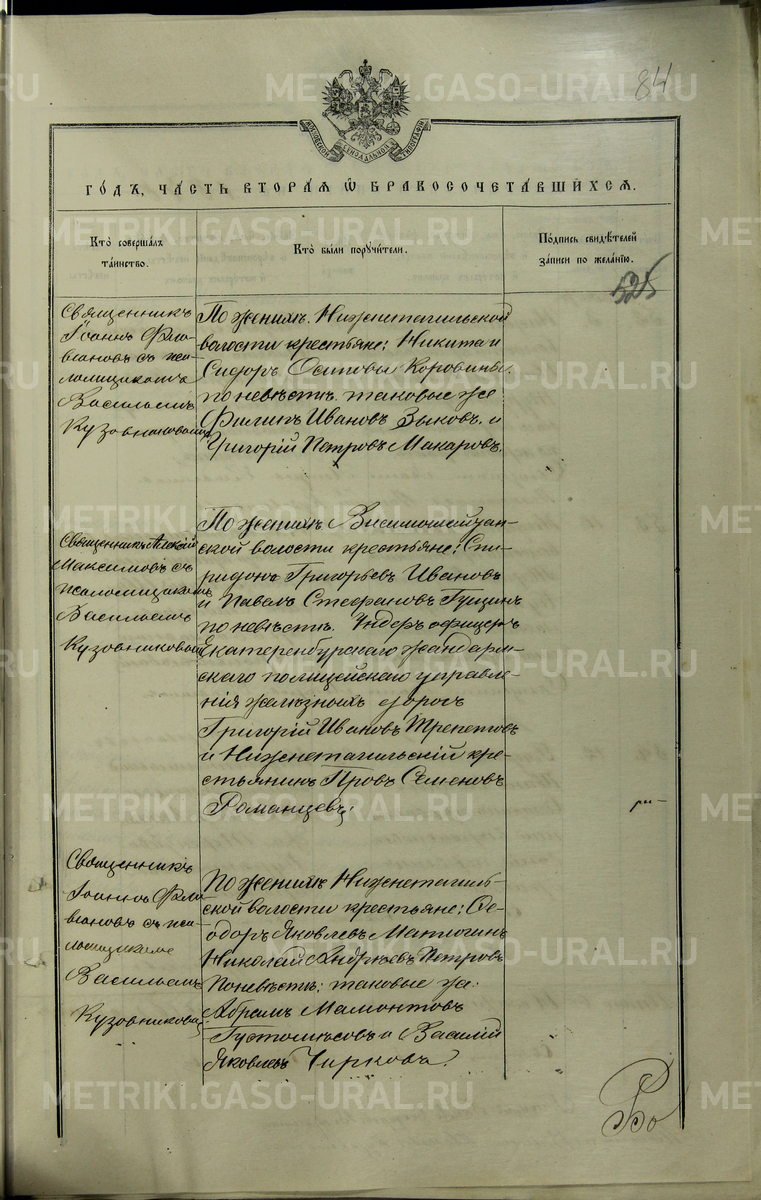 84
МОСКОВСКОЙ СѴНОДАЛЬНОЙ ТИПОГРАФІИ
ГОДЪ, ЧАСТЬ ВТОРАЯ Ѿ БРАКОСОЧЕТАВШИХСЯ.
Кто совершалъ таинство.
Кто были поручители.
Подпись свидѣтелей записи по желанію.
525
Священникъ
Іоаннъ Фло-
віановъ съ пса-
ломщикомъ
Васильемъ
Кузовниковымъ
По женихѣ: Нижнетагильской
волости крестьяне: Никита и
Сидоръ Осиповы Коровины.
по невѣстѣ: таковые же
Филипъ Ивановъ Зыковъ. и
Григорій Петровъ Макаровъ.
Священникъ Алексій
Максимовъ съ
псаломщикомъ
Васильемъ
Кузовниковымъ
По женихѣ Висимошайтан-
ской волости крестьяне: Спи-
ридонъ Григорьевъ Ивановъ
и Павелъ Стефановъ Гущинъ
по невѣстѣ. Ундеръ офицеръ
Екатеренбурскаго жандарм-
скаго полицейскаго управле-
нія желѣзныхъ дорогъ
Григорій Ивановъ Трепетовъ
и Нижнетагильскій кре-
стьянинъ Провъ Семеновъ
Романцевъ;
ри-
Священникъ
Іоаннъ Фло-
віановъ съ пса-
ломщикомъ
Васильемъ
Кузовниковымъ
По женихѣ Нижнетагиль-
ской волости крестьяне: Ѳе-
одоръ Яковлевъ Матюгинъ
Николай Андреевъ Петровъ
По невѣстѣ: таковые же:
Абрамъ Мамонтовъ
Густомѣсовъ и Василій
Яковлевъ Чирковъ.
Во
METRIKI.GASO-URAL.RU